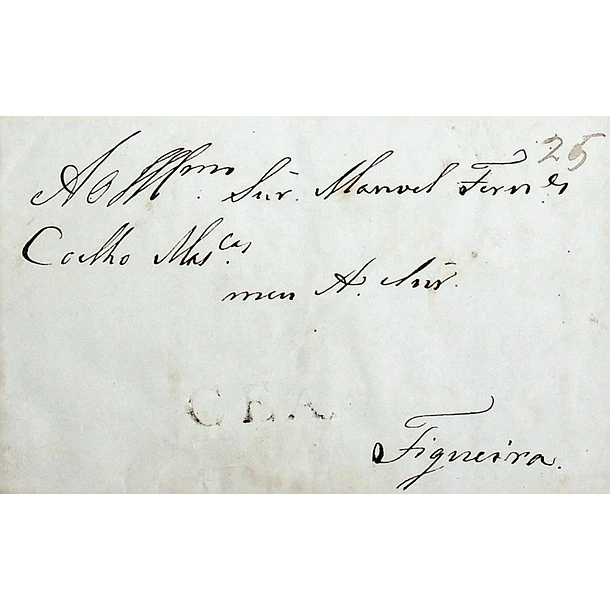 25
Ao Illmo. Snr. Manoel Fern.des
Coelho Mas.cas
meu A. Snr.
CEA
Figueira.